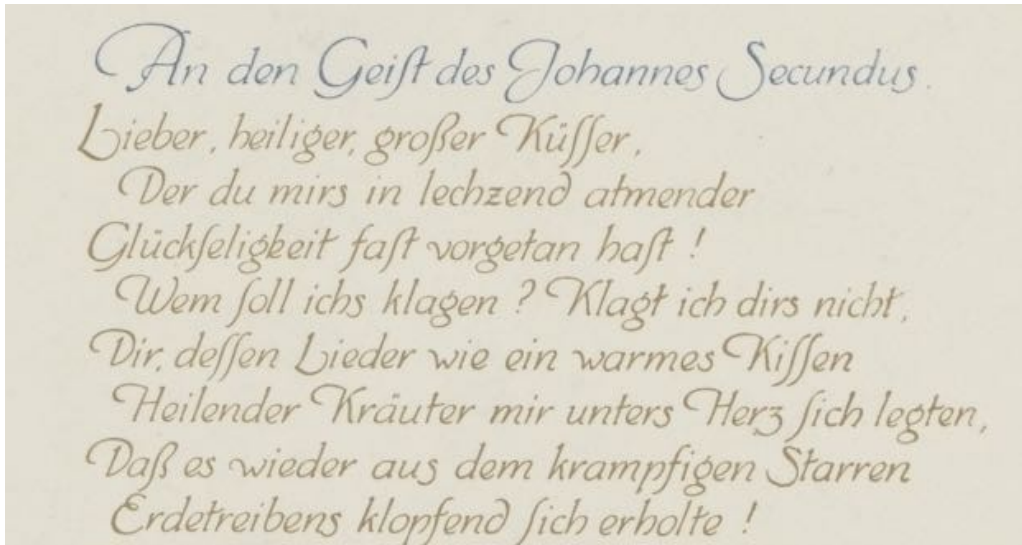 An den Geiſt des Johannes Secundus.
Lieber, heiliger, großer Küſſer,
Der du mirs in lechzend atmender
Glückſeligkeit faſt vorgetan haſt !
Wem ſoll ichs klagen ? Klagt ich dirs nicht,
Dir, deſſen Lieder wie ein warmes Kiſſen
Heilender Kräuter mir unters Herz ſich legten,
Daß es wieder aus dem krampfigen Starren
Erdetreibens klopfend ſich erholte !